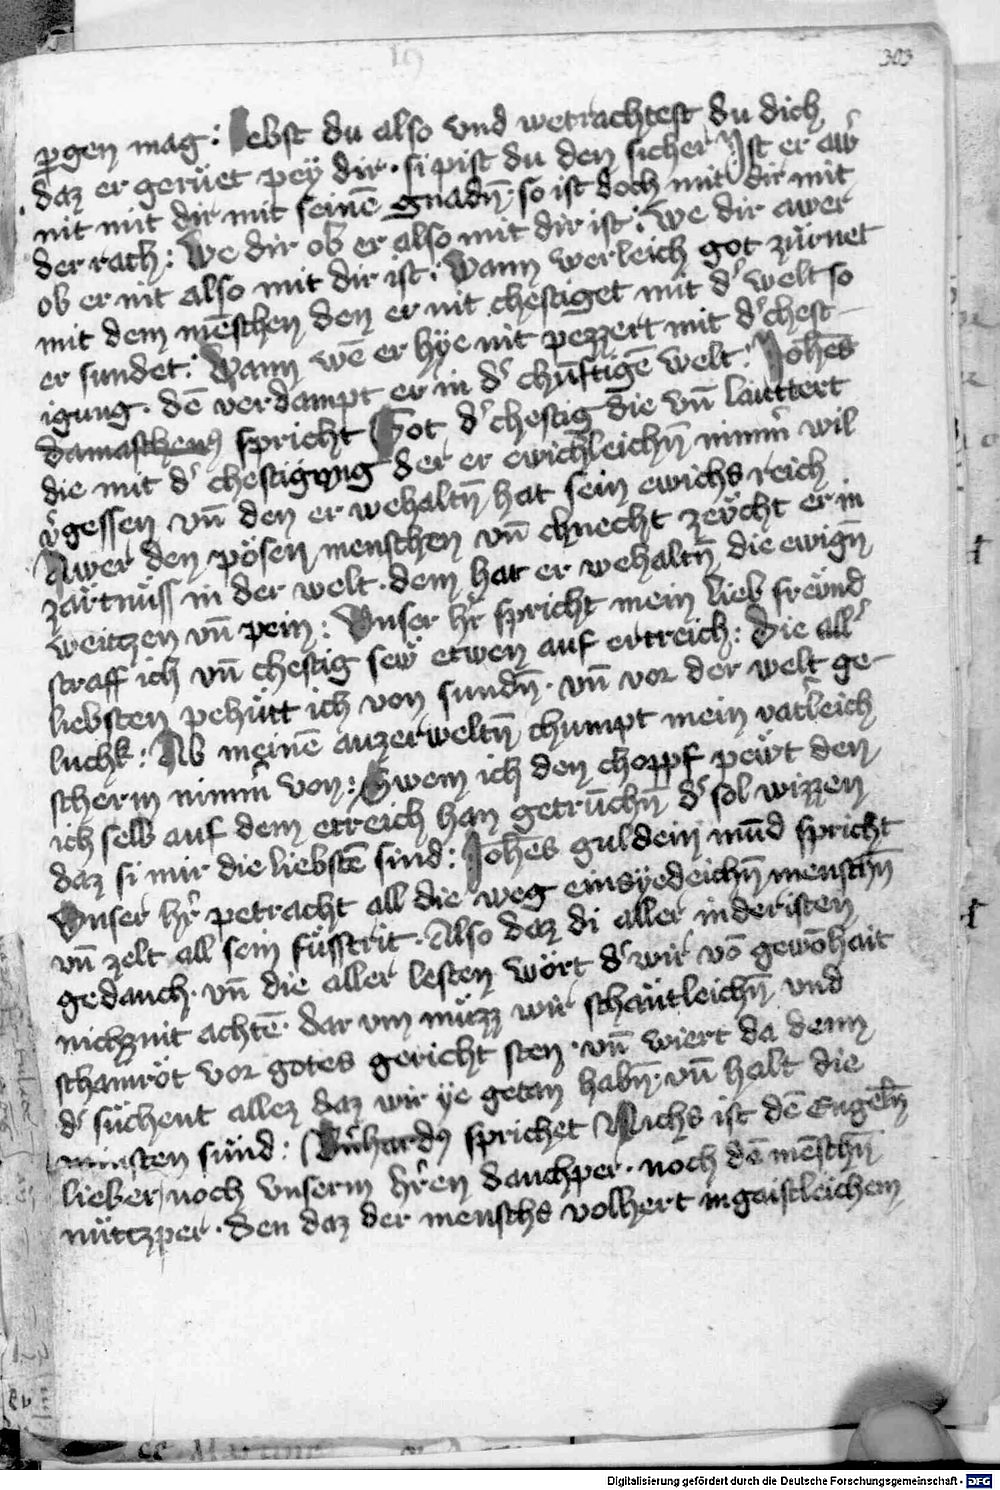 303
pergen mag: lebst du also vnd wetrachtest du dich
daz er gerüet pey dir · si pist du den sicher Ist er aw̄
nit mit dir mit seinē gnadn̄ · so ist doch mit dir mit
der rach: We dir ob er also mit dir ist: We dir awer
ob er nit also mit dir ist: Wann werleich got zürnet
mit dem mēschen den er nit chestiget mit d' welt so
er sundet: Wann wē er hye nit pezzert mit d' chest-
igung · dē verdampt er in d' chūftigē welt: Johēs
damascheng spricht Got d' chestig die vn̄ lauttert
die mit d' chestigung der er ewichleichn̄ nimm' wil
v'gessen vn̄ den er wehaltn̄ hat sein ewichs reich
Awer den pösen menschen vn̄ chnecht zewcht er in
zärtnüss in der welt · dem hat er wehaltn̄ die ewign̄
weitzen vn̄ pein: Vnser hr̄ spricht mein lieb frewnd
straff ich vn̄ chestig sew etwen auf ertreich: Die all'
liebsten pehütt ich von sundn̄ · vn̄ vor der welt ge-
luchk: Ab meinē auzerweltn̄ chumpt mein vat'leich
scherm nimm' von: Swem ich den chopf pewt den
ich selb auf dem etreich han getrūchn̄ d' sol wizzen
daz si mir die liebstē sind: Johēs guldein mūd spricht
Vnser hr̄ petracht all die weg einsyedeichn̄ menschn̄
vn̄ zelt all sein füsstrit · Also daz di aller inderisten
gedanch · vn̄ die aller lesten wört d' wir vō gewōhait
nichznit achtē · dar vm müzz wir schäutleichn̄ vnd
schamröt vor gotes gericht sten · vn̄ wiert da denn
d' süchent allez daz wir ye getan habn̄ · vn̄ halt die
minsten sünd: Bn̄hardg sprichet Nichs ist dē Engeln̄
lieber noch vnserm hr̄en danchper · noch dē mēschn̄
nüttzper · den daz der menschs volhert in gaistleichem
Digitalisierung gefördert durch die Deutsche Forschungsgemeinschaft - DFG